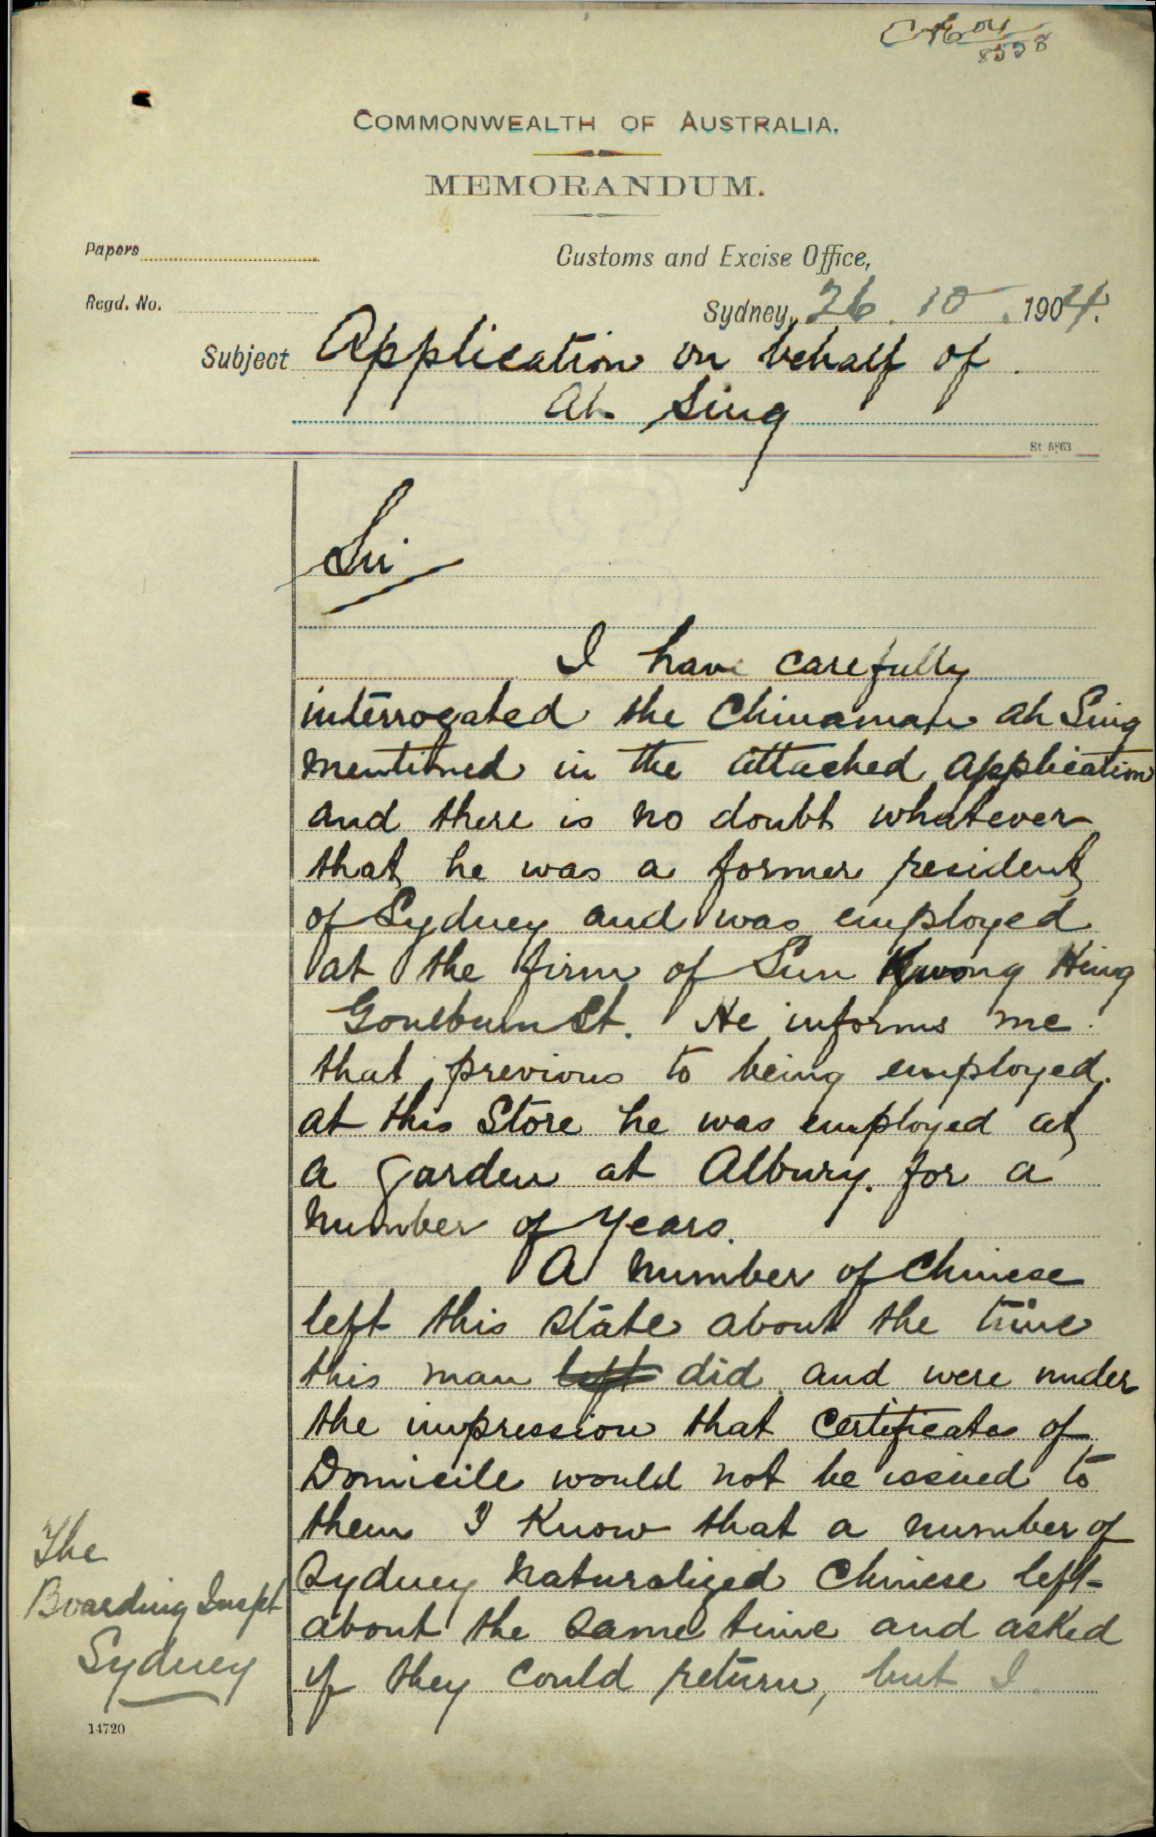 04
8528
COMMONWEALTH OF AUSTRALIA.
MEMORANDUM.
Papers
Customs and Excise Office,
Regd. No.
Sydney, 26. 10. 1904.
Subject Application on behalf of
Ah Sing
St 5863
Sir
I have carefully
interrogated the Chinaman Ah Sing
mentioned in the attached application
and there is no doubt whatever
that he was a former resident
of Sydney and was employed
at the firm of Sun Kwong Hing
Goulburn St. He informs me
that previous to being employed
at this Store he was employed at
a garden at Albury. for a
number of years.
A number of Chinese
left this state about the time
this man left did and were under
the impression that certificates of
Domicile would not be issued to
them I know that a number of
Sydney naturalized Chinese left
about the same time and asked
if they could return, but I
The
Boarding Inspt
Sydney
14720